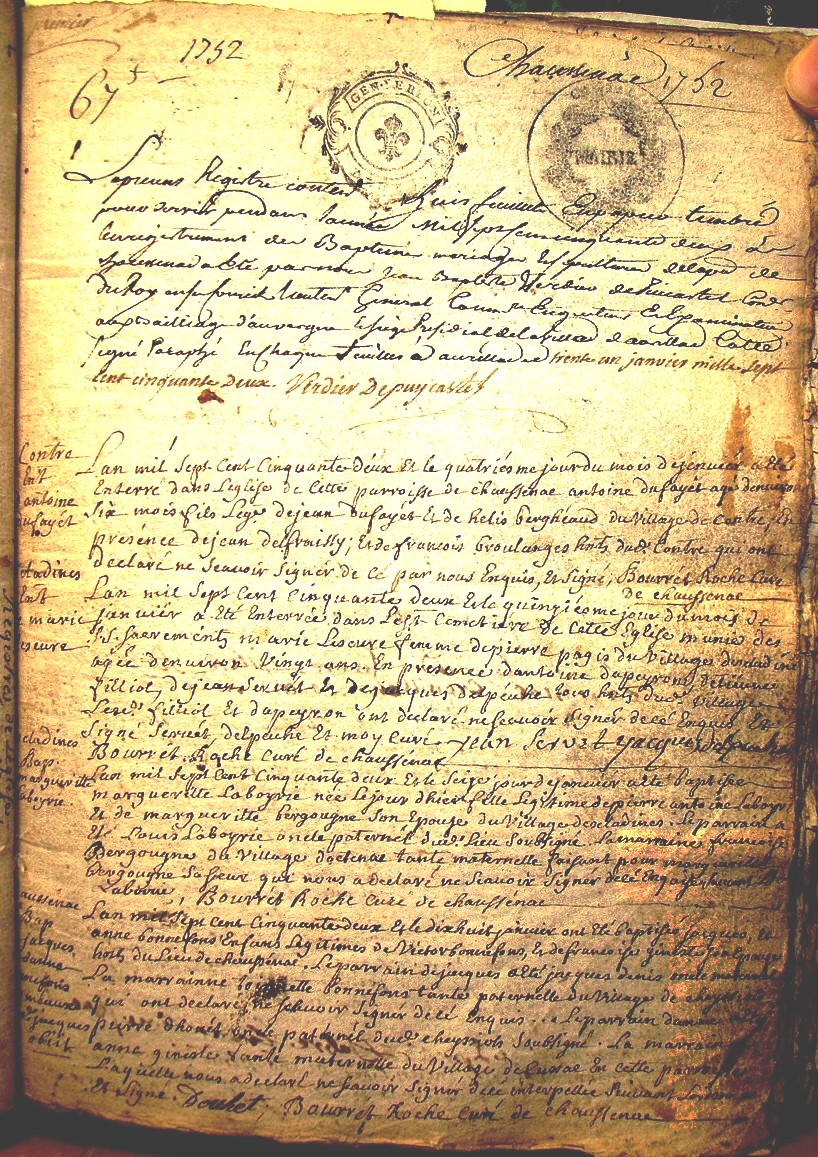 1752
67
Chaussenac 1752
GEN
MAIRIE
Le present Registre contenant huit feuillets En papier timbré
pour servir pendant l'année Mil sept cent cinquante deux à
Enregistrement des Baptemes mariages Et sepultures de la par de
Chaussenac a Eté par nous Jean Baptiste Verdier de Puicastel Cons
du Roy Lieutent General Comre Enqueteur Et Examinateur
au Bailliage d'auvergne Et siege Presidial de la ville d'aurillac Cotté
signé Paraphé En chaque feuillet à aurillac le trente un janvier mille sept
cent cinquante deux. Verdier De puycastel
Contre
Ent
antoine
dufayet
Lan mil Sept Cent Cinquante deux Et le quatriesme jour du mois de jenvier a Eté
Enterré dans L'Eglise de Cette parroisse de chaussenac antoine dufayet agé denviron
Six mois fils Leg. de jean dufayet Et de helis bergheaud du Village de Contre, En
presence de jean delfraissy, Et de francois broulanges hnts dud. Contre qui ont
declaré ne Scavoir Signer de Ce par nous Enquis, Et Signé, Bourrét Roche Curé
de chaussenac
cladines
Ent
marie
Lescure
Lan mil Sept Cent Cinquante deux Et le quinziesme jour du mois de
janviér a Eté Enterrée dans Le Cemetiere de Cette Eglise munie des
Sts Sacrements marie Lescure femme de pierre pagis du Village descladines
agée denviron Vingt ans. En présence dantoine dapeyron detienne
filliol, de jean Servét Et de jacques delpeuche tous hnts dud. Village
Lesd. filliol Et dapeyron ont declaré ne Scavoir Signer de Cé Enquis Et
Signé Servét, delpeuche Et moy Curé. jean Servet jacques delpeuche
Bourrét Roche Curé de chaussenac
cladines
Bap.
marguerite
Laboyrie.
Lan mil Sept Cent Cinquante deux Et le Seize jour de janvier a eté baptisée
margueritte Laboyrie née Le jour dhier fille Legitime de pierre antoine Laboyrie
Et de margueritte bergougne Son Epouse du Village descladines. Le parrain a
Eté Louis Laboyrie oncle paternél dud. Lieu Soubsigné. La marraine francoise
Bergougne du Village doctenac tante maternelle faisant pour margueritte
bergougne Sa Soeur qui nous a declaré ne Scavoir Signer de Cé Enquise
Laborie, Bourrét Roche Curé de chaussenac
aussénac
Bap
jacques.
danne
nefons
jacques
obiit
Lan mil Sept Cent Cinquante deux Et le dixhuit janvier ont Eté baptisés jacques, Et
anne bonnefons Enfans Legitimes de Victor bonnefons, Et de francoise gineste Son Epouse
hnts du Lieu de chaussénac. Le parrain de jacques a Eté jacques denis oncle maternel
La marrainne bonnefons tante paternelle du Village de cheyssiols
qui ont declaré ne Scavoir Signer de Cé Enquis. Le parrain danne
pierre dhouét oncle paternél dud. cheyssiols Soubsigné. La marraine
anne gineste tante maternelle du Village de En cette parroisse
Laquelle nous a declaré ne Scavoir Signer de Cé interpellée Suivant
Et Signé. Doulet, Bourrét Roche Curé de chaussenac